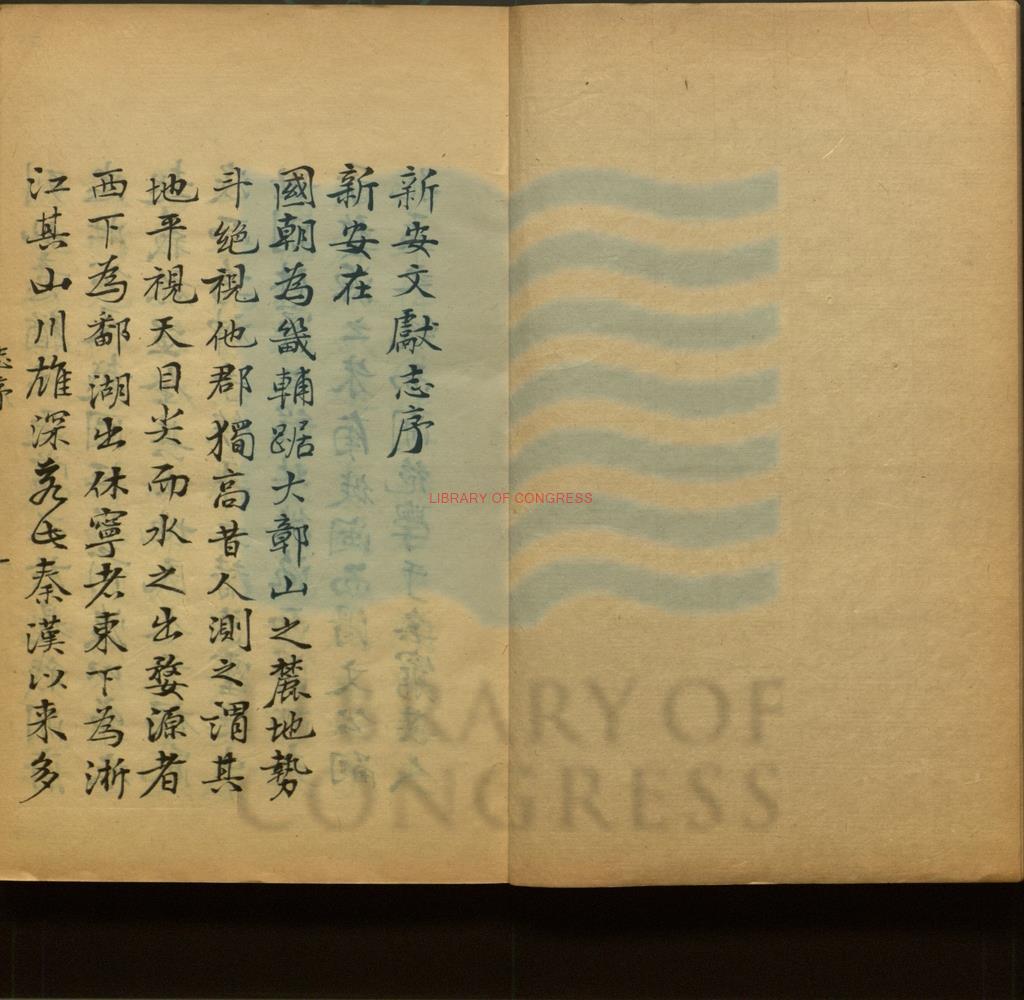 新安文獻志序
新安在
國朝為畿輔踞大鄣山之麓地勢
斗絶視他郡獨高昔人測之謂其
地平視天目尖而水之出婺源者
西下為鄱湖出休寧者東下為浙
江其山川雄深若此秦漢以来多
志序
一
LIBRARY OF CONGRESS
LIBRARY OF
CONGRESS